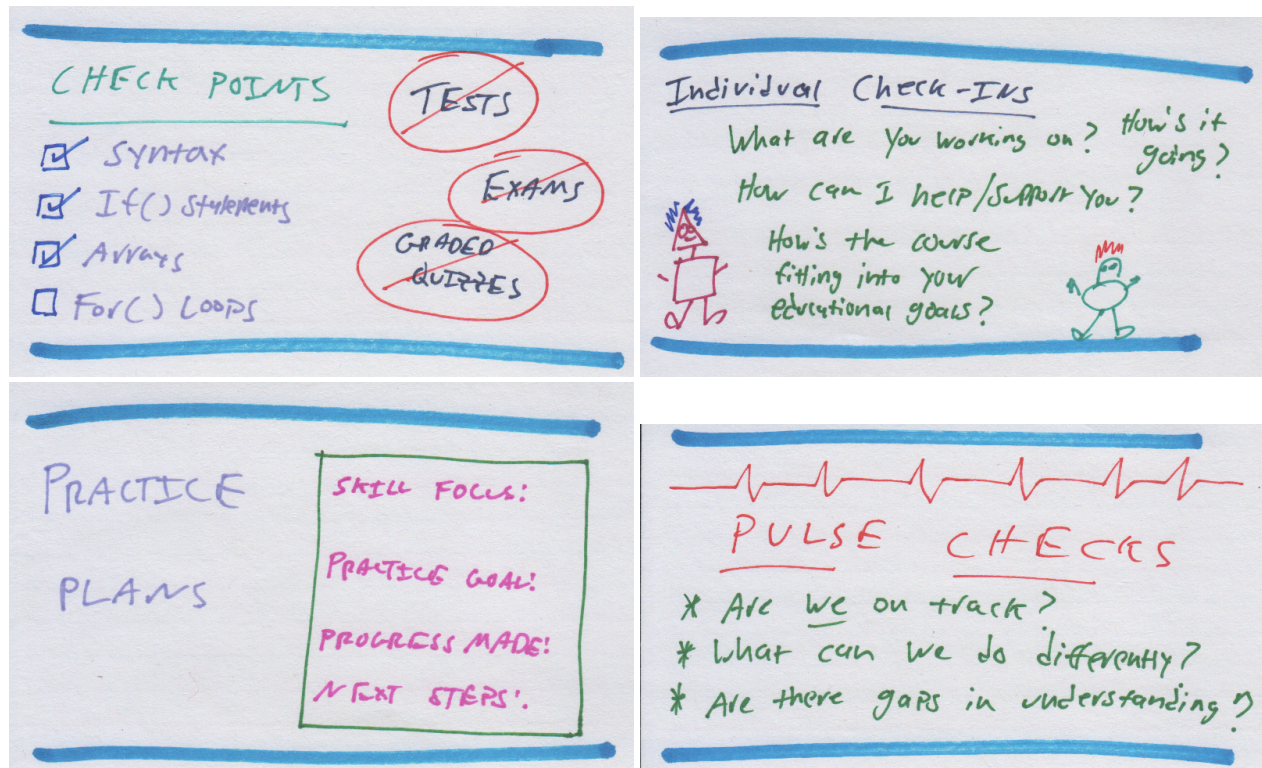 CHECK POINTS
Syntax
If() Statements
Arrays
For() Loops
TESTS
EXAMS
GRADED
QUIZZES
Individual Check-Ins
What are you working on?
How's it
going?
How can I help/support you?
How's the course
fitting into your
educational goals?
PRACTICE
PLANS
SKILL FOCUS:
PRACTICE GOAL:
PROGRESS MADE:
NEXT STEPS:
PULSE CHECKS
* Are we on track?
* What can we do differently?
* Are there gaps in understanding?